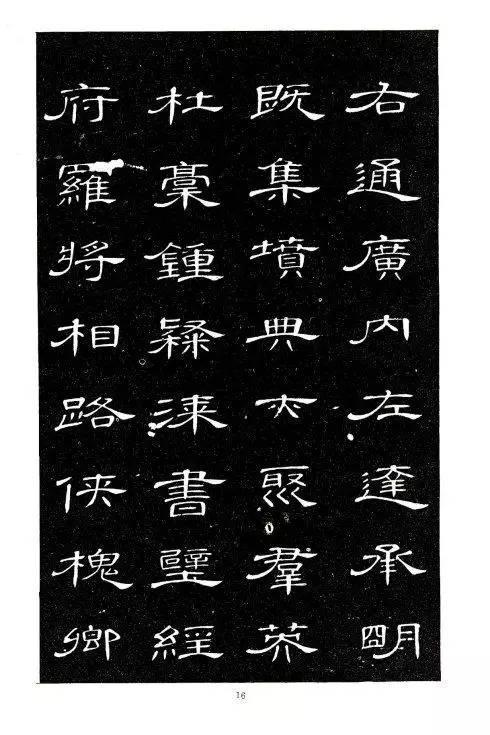 右通廣内左達承明
既集墳典亦聚羣英
杜稾鍾隸漆書壁經
府羅將相路俠槐卿
16